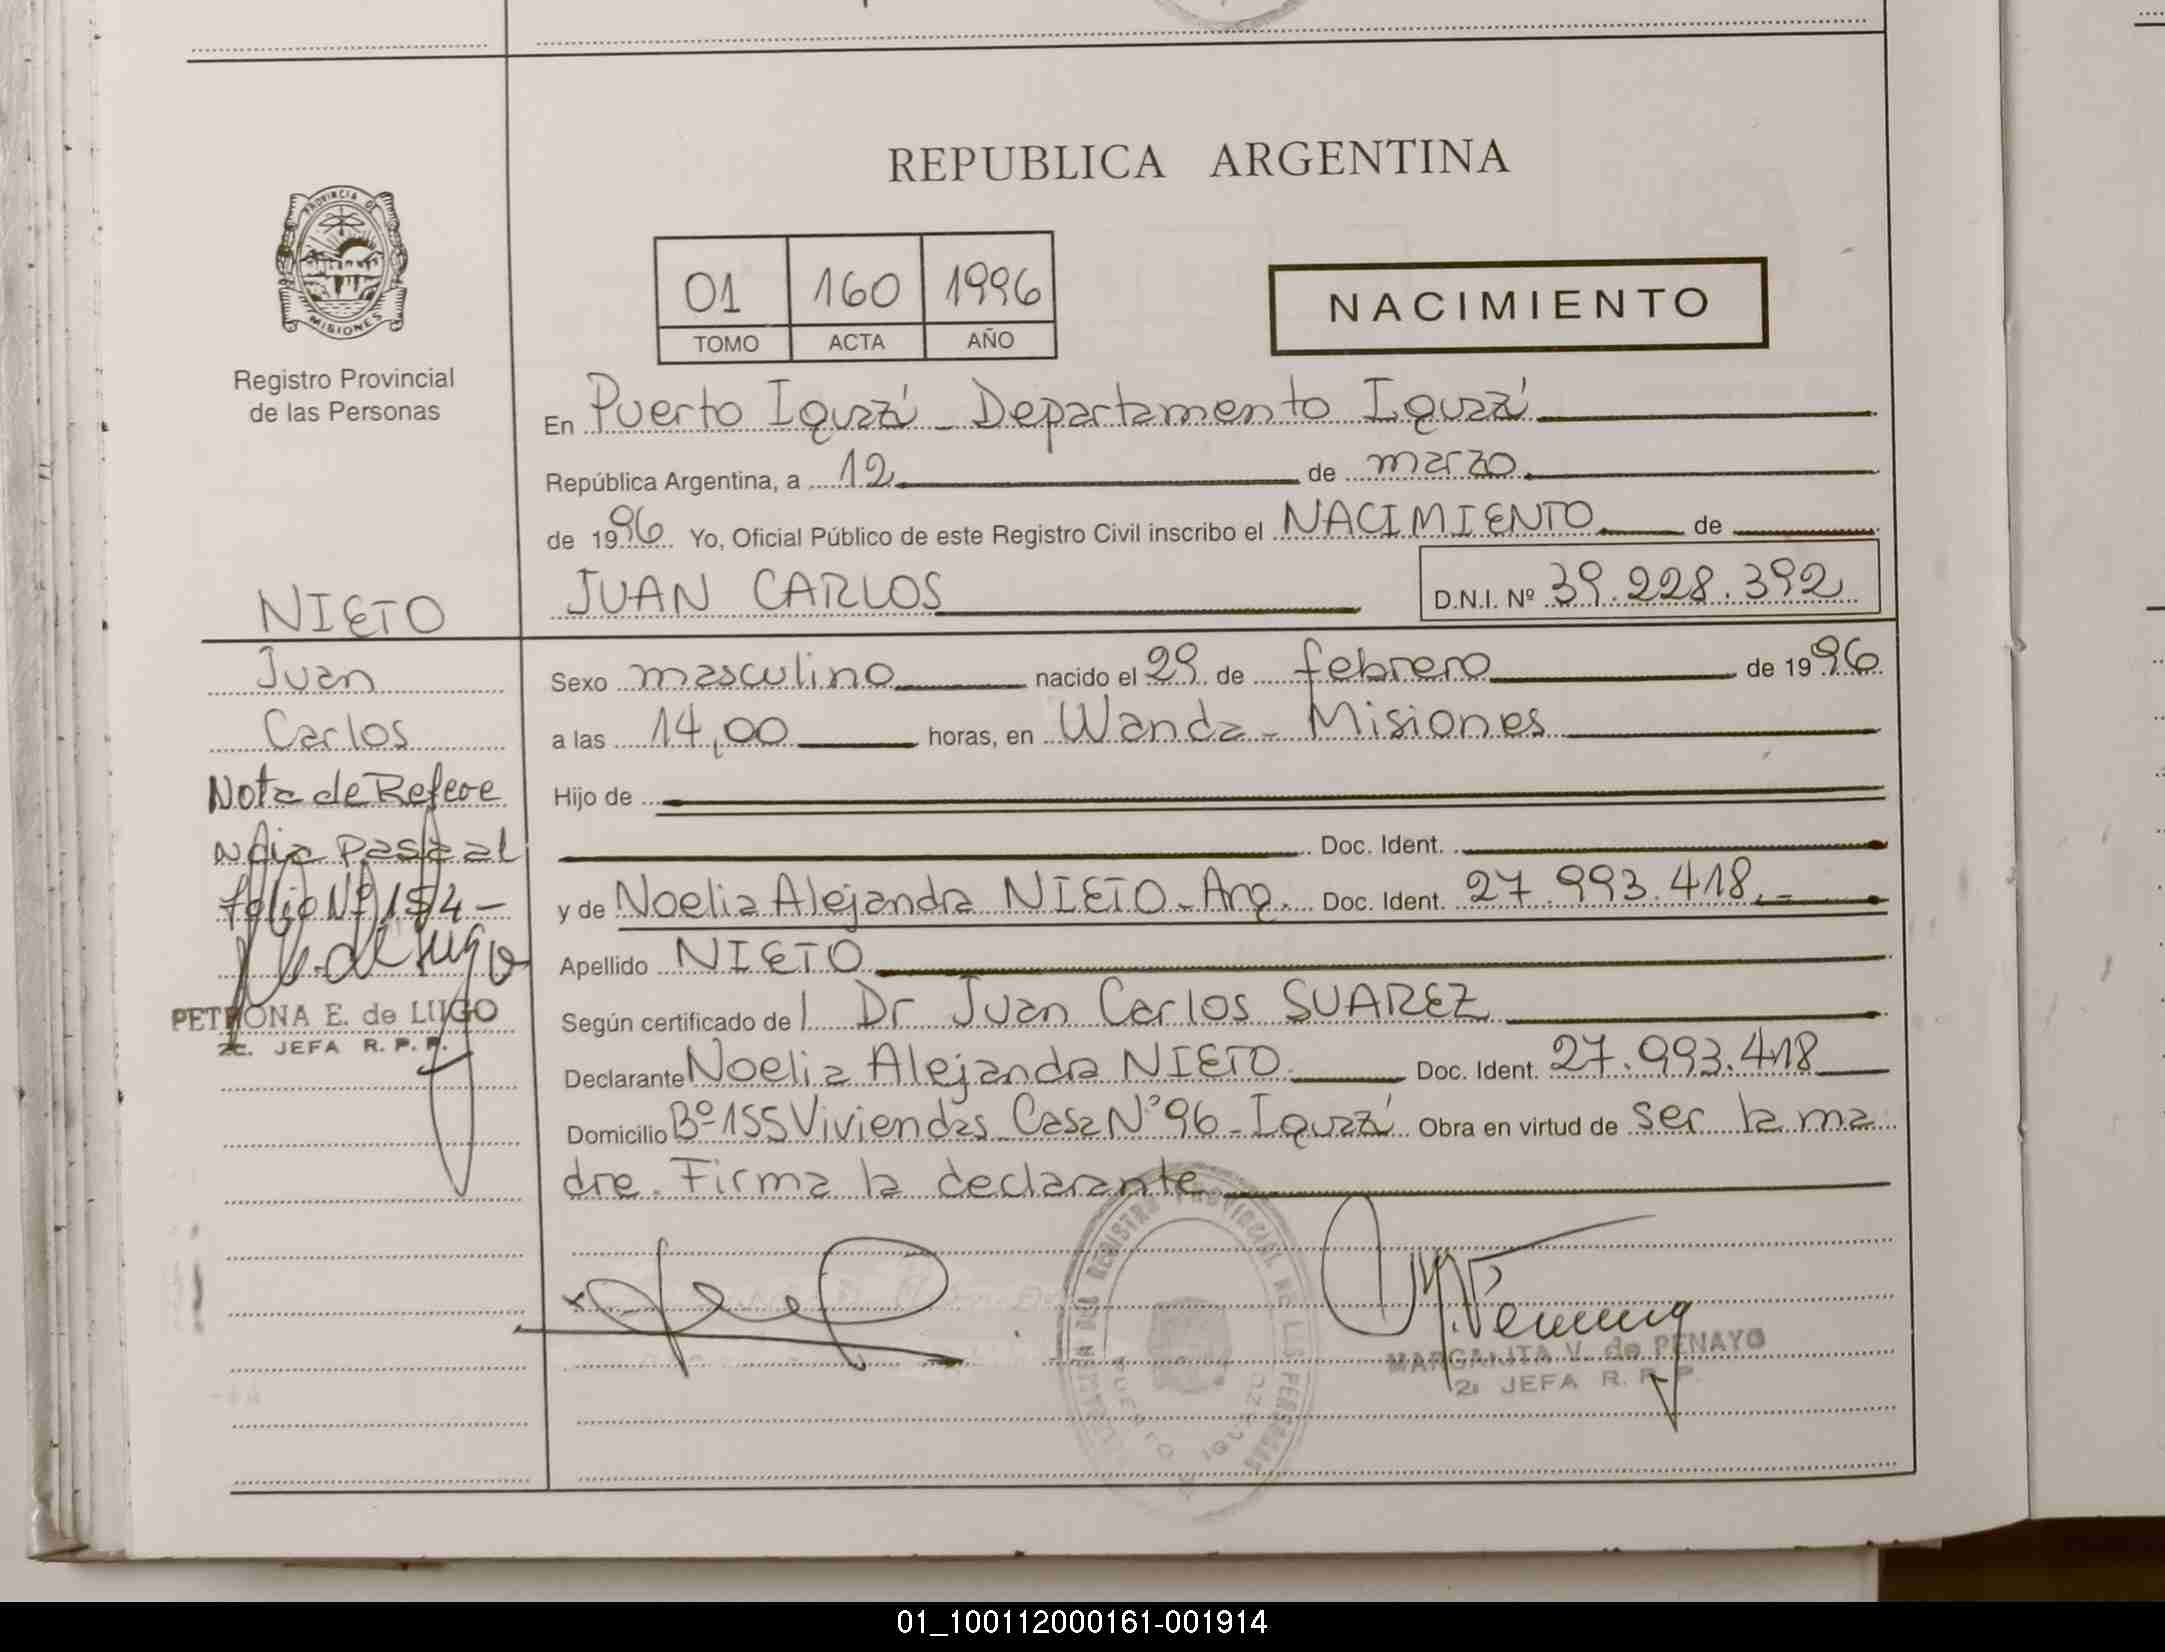 REPUBLICA ARGENTINA
PROVINCIA DE
MISIONES
Registro Provincial
de las Personas
01 160 1996
TOMO ACTA AÑO
NACIMIENTO
En Puerto Iguazú - Departamento Iguazú
República Argentina, a 12 de marzo
de 1996 Yo, Oficial Público de este Registro Civil inscribo el NACIMIENTO de
JUAN CARLOS D.N.I. Nº 39.228.392
NIETO
Juan
Carlos
Nota de Refere
ncia Pasa al
folio Nº 154 -
PETRONA E. de LUGO
2ª. JEFA R. P. P.
Sexo masculino nacido el 29 de febrero de 1996
a las 14,00 horas, en Wanda - Misiones
Hijo de
Doc. Ident.
y de Noelia Alejandra NIETO - Arg. Doc. Ident. 27.993.418.-
Apellido NIETO
Según certificado del Dr Juan Carlos SUAREZ
Declarante Noelia Alejandra NIETO Doc. Ident. 27.993.418
Domicilio Bº 155 Viviendas Casa Nº 96 - Iguazú Obra en virtud de ser la ma
dre. Firma la declarante
REGISTRO PROVINCIAL DE LAS PERSONAS
PUERTO IGUAZU
MARGARITA V. de PENAYO
2ª JEFA R. P. P.
01_100112000161-001914